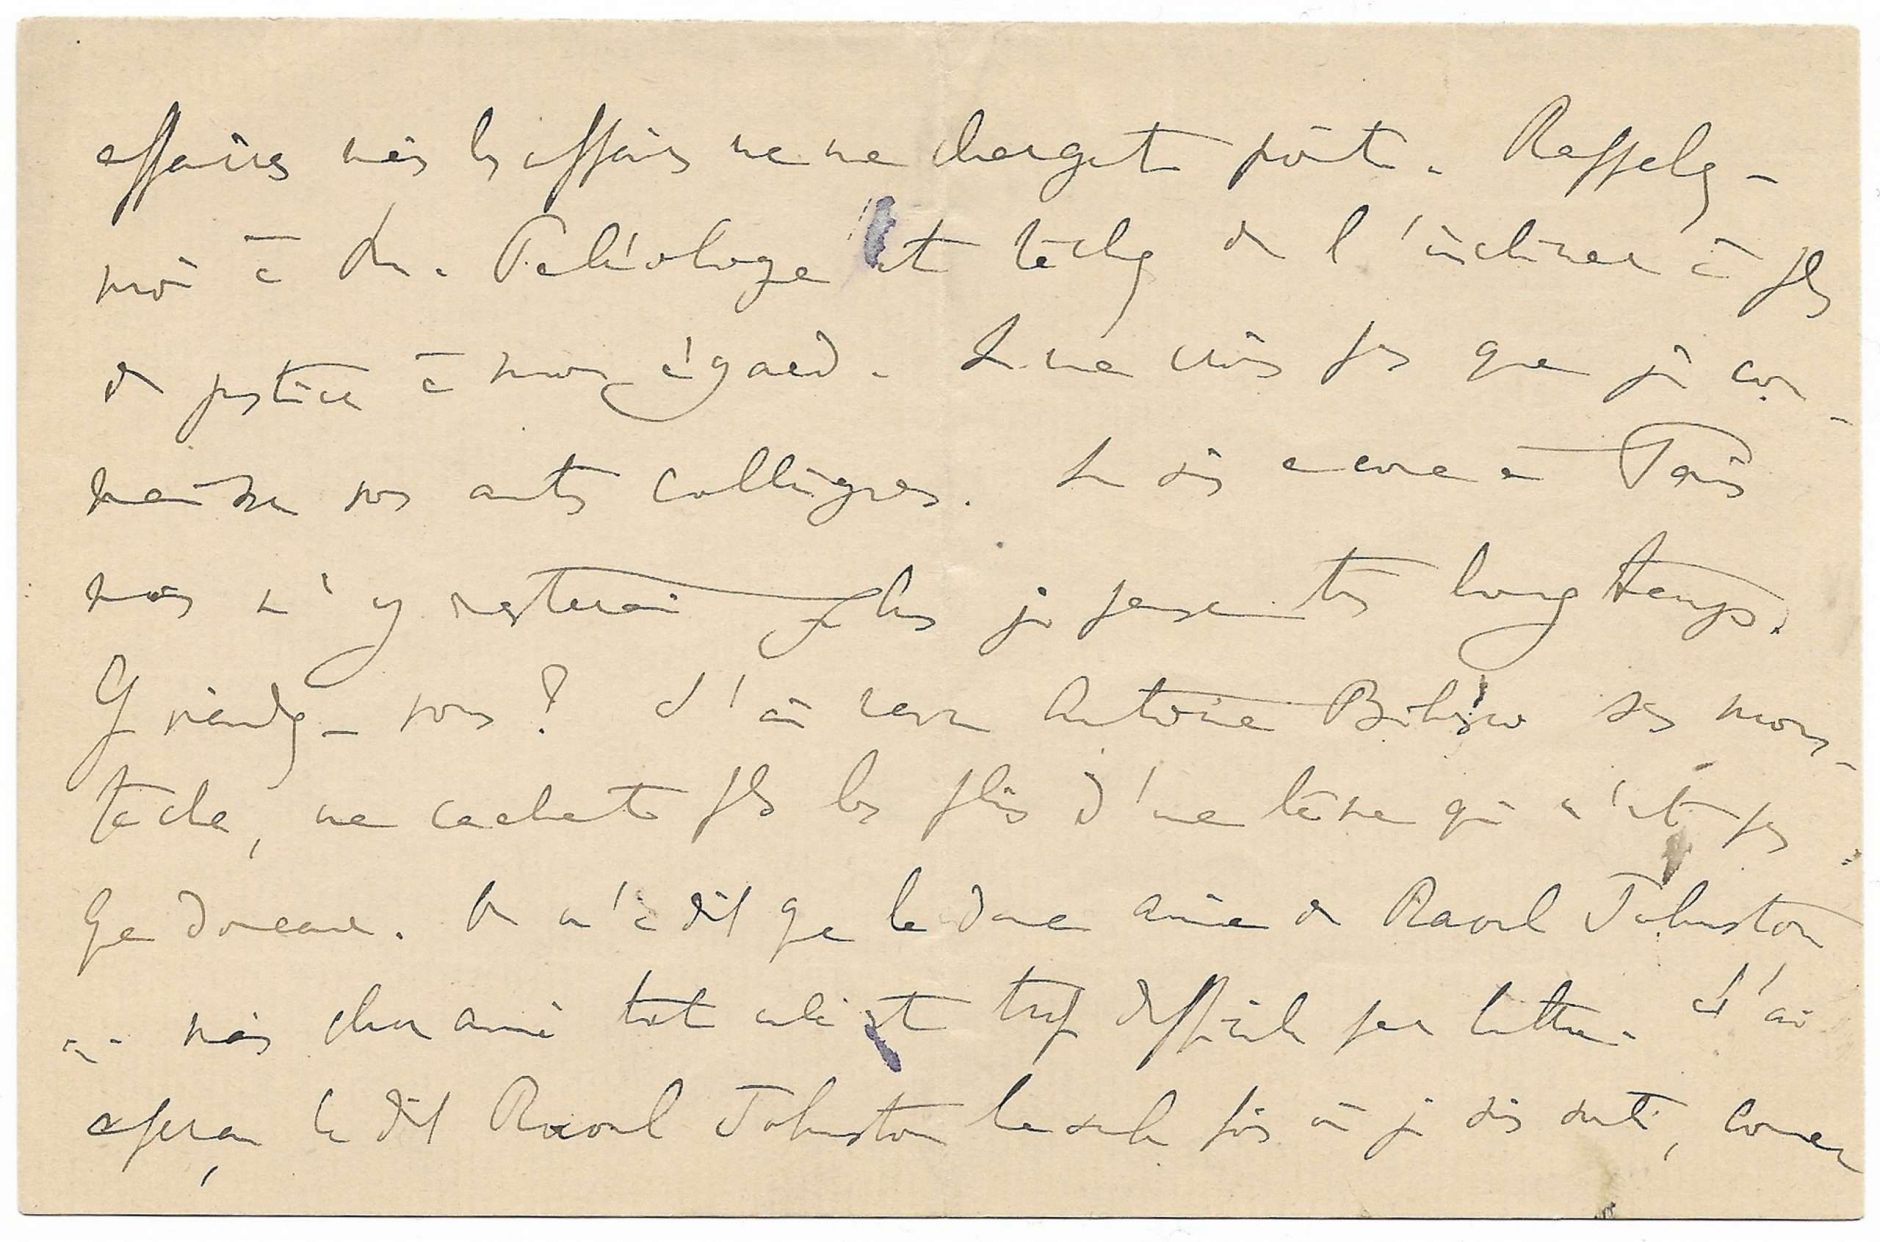 affaires mais les affaires ne me chargent point. Rappelez-
moi à M. Paléologue et tâchez de l'incliner à plus
de justice à mon égard. Je ne crois pas que je con-
naisse vos autres collègues. Je suis encore à Paris
mais n'y resterai plus je pense très longtemps.
Y viendrez-vous ? J'ai revu Antoine Bibesco sans mous-
tache, ne cachant plus les plis d'une lèvre qui n'est pas
que douceur. On m'a dit que le done amie de Raoul Johnston
... mais cher ami tout cela est trop difficile par lettre. J'ai
aperçu le dit Raoul Johnston la seule fois où je suis sorti, comme